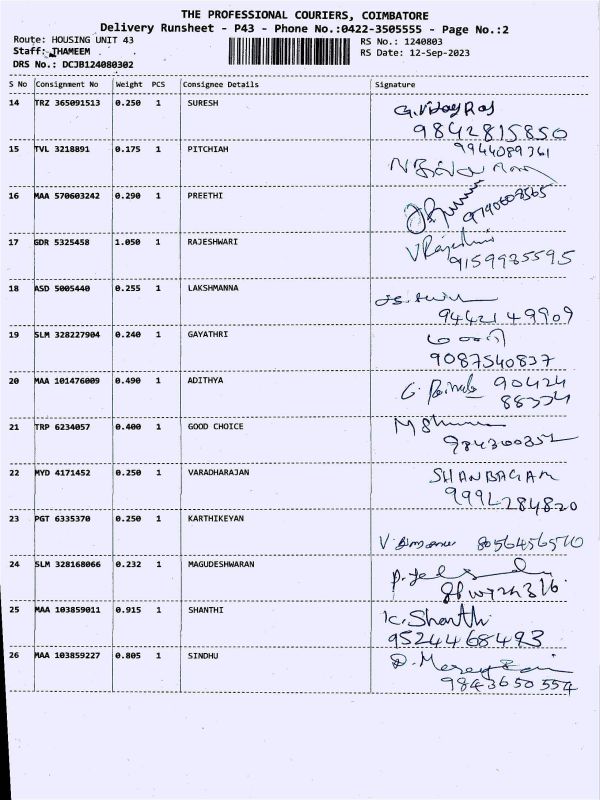 THE PROFESSIONAL COURIERS, COIMBATORE
Delivery Runsheet - P43 - Phone No.:0422-3505555 - Page No.:2
Route: HOUSING UNIT 43
RS No.: 1240803
Staff: THAMEEM
RS Date: 12-Sep-2023
DRS No.: DCJB124080302
S No Consignment No Weight PCS Consignee Details Signature
14 TRZ 365091513 0.250 1 SURESH G.Vijay Raj
9842815850
15 TVL 3218891 0.175 1 PITCHIAH 9944089361
16 MAA 570603242 0.290 1 PREETHI
9790608565
17 GDR 5325458 1.050 1 RAJESHWARI V Rajeshwari
9159985595
18 ASD 5005440 0.255 1 LAKSHMANNA
9442149909
19 SLM 328227904 0.240 1 GAYATHRI
9087540837
20 MAA 101476009 0.490 1 ADITHYA 90424
88334
21 TRP 6234057 0.400 1 GOOD CHOICE
22 MYD 4171452 0.250 1 VARADHARAJAN SHANBAGAM
9994284820
23 PGT 6335370 0.250 1 KARTHIKEYAN
8056456570
24 SLM 328168066 0.232 1 MAGUDESHWARAN
25 MAA 103859011 0.915 1 SHANTHI K. Shanthi
9524468493
26 MAA 103859227 0.805 1 SINDHU
9843650554